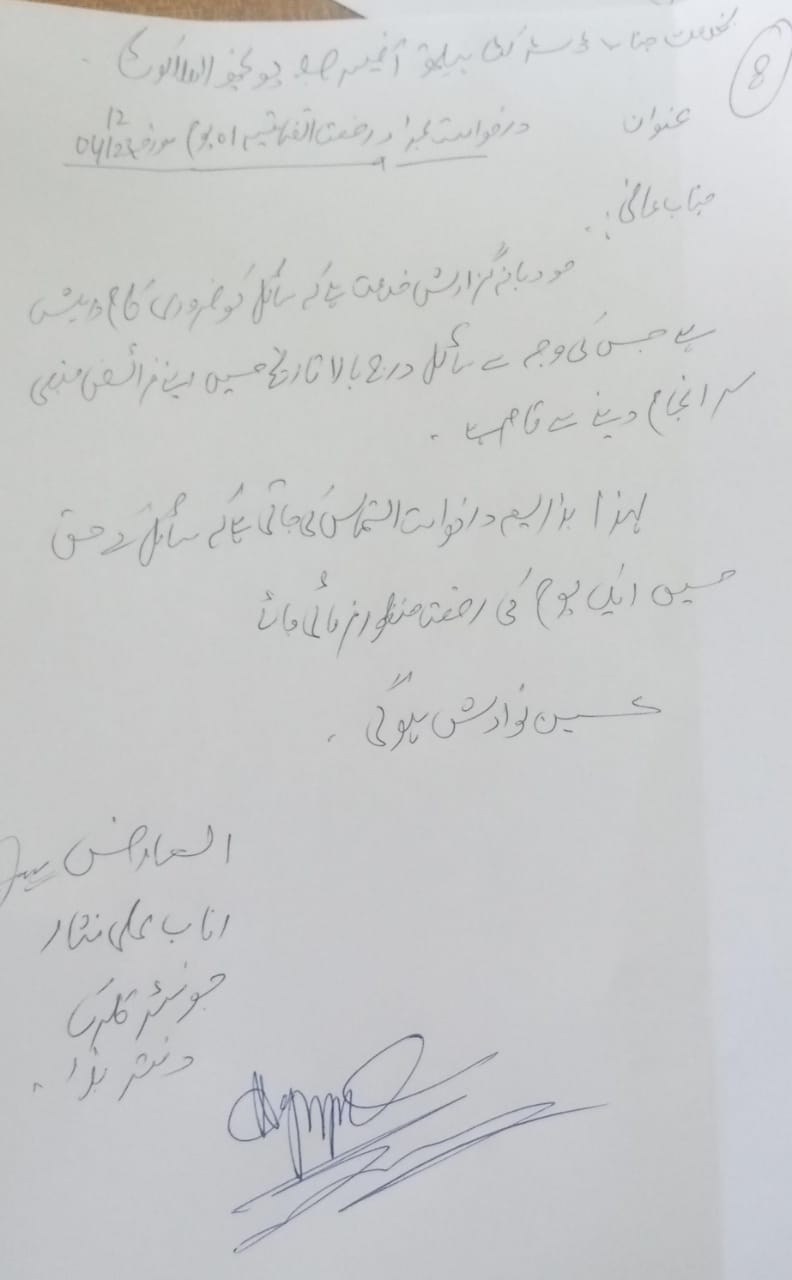 8
بخدمت جناب ڈسٹرکٹ ہیلتھ آفیسر صاحب
عنوان درخواست بمراد رخصت اتفاقیہ 01 یوم مورخہ 04/12/23
جناب عالی:۔
مودبانہ گزارش خدمت ہے کہ سائل کو ضروری کام درپیش
ہے جس کی وجہ سے سائل درج بالا تاریخ میں اپنے فرائض منصبی
سرانجام دینے سے قاصر ہے ۔
لہذا بذریعہ درخواست التماس کی جاتی ہے کہ سائل کے حق
میں ایک یوم کی رخصت منظور فرمائی جائے
عین نوازش ہوگی ۔
العارض
علی نثار
جونیئر کلرک
دفتر ہذا ۔